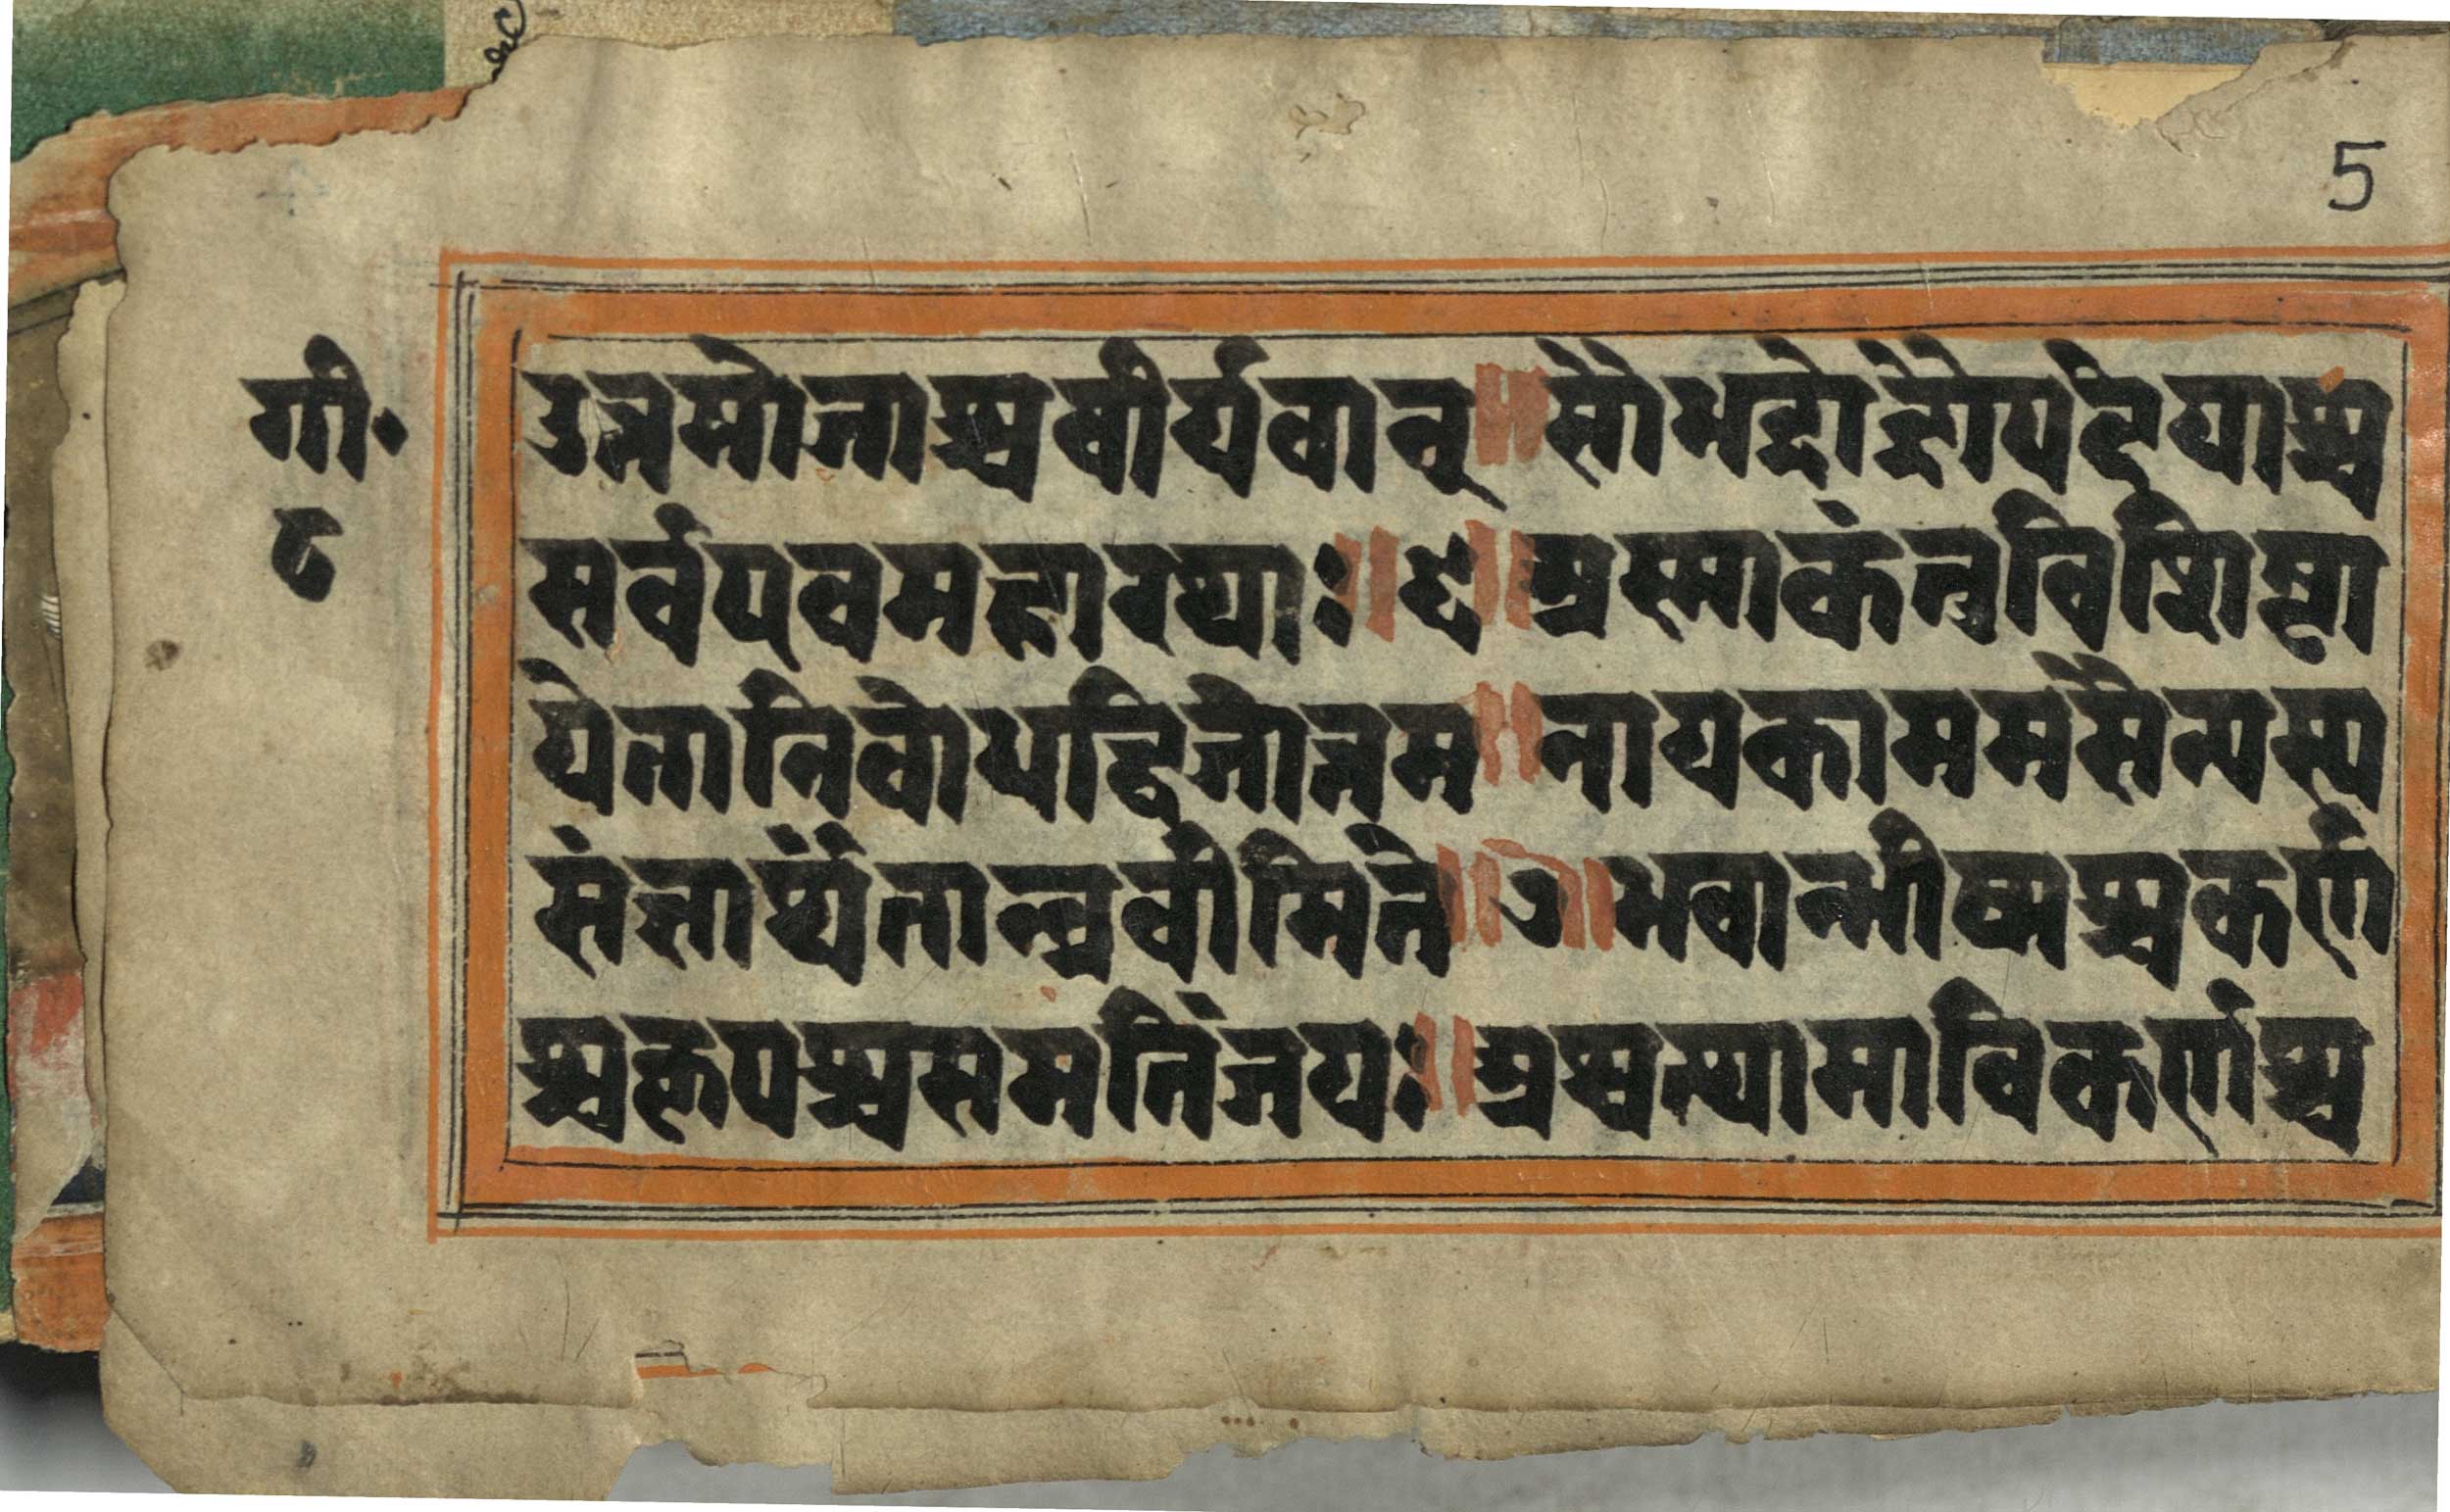 5
गी॰
८
उत्तमौजाश्च वीर्यवान् ॥ सौभद्रो द्रौपदेयाश्च
सर्व एव महारथाः ॥ ६ ॥ अस्माकं तु विशिष्टा
ये तान्निबोध द्विजोत्तम ॥ नायका मम सैन्यस्य
संज्ञार्थं तान्ब्रवीमि ते ॥ ७ ॥ भवान्भीष्मश्च कर्ण
श्च कृपश्च समतिंजयः ॥ अश्वत्थामा विकर्णश्च